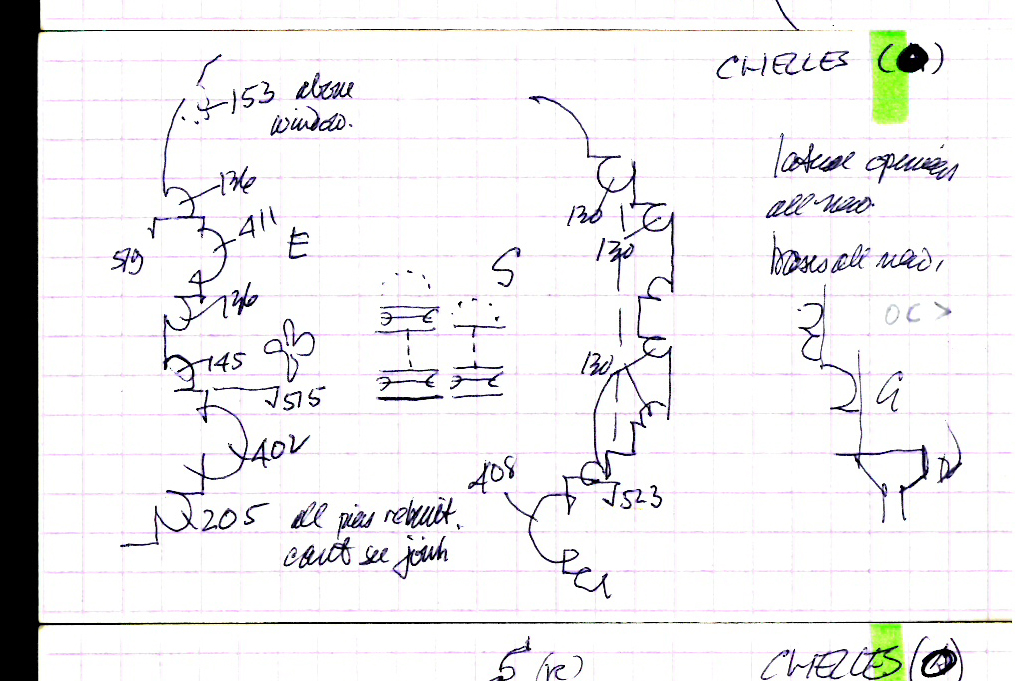 CHELLES ( )
153 above
window.
136
411
519
E
136
145
√515
402
205
all piers rebuilt.
can't see joint
S
130
130
130
408
√523
all new.
bases all new,
OC >
a
5 (re)
CHELLES ( )